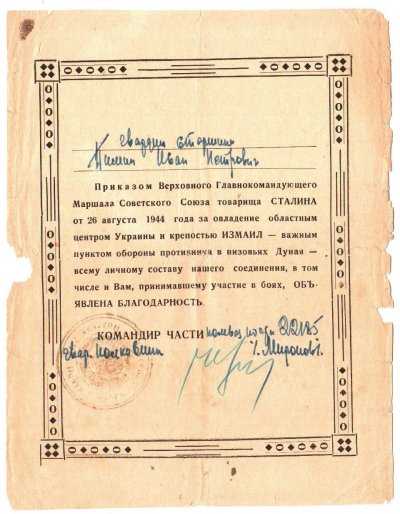 гвардии старшина
Кишин Иван Петрович
Приказом Верховного Главнокомандующего
Маршала Советского Союза товарища СТАЛИНА
от 26 августа 1944 года за овладение областным
центром Украины и крепостью ИЗМАИЛ — важным
пунктом обороны противника в низовьях Дуная —
всему личному составу нашего соединения, в том
числе и Вам, принимавшему участие в боях, ОБЪ-
ЯВЛЕНА БЛАГОДАРНОСТЬ.
КОМАНДИР ЧАСТИ полевая почта 22185
гвар. полковник /. Миронов/.